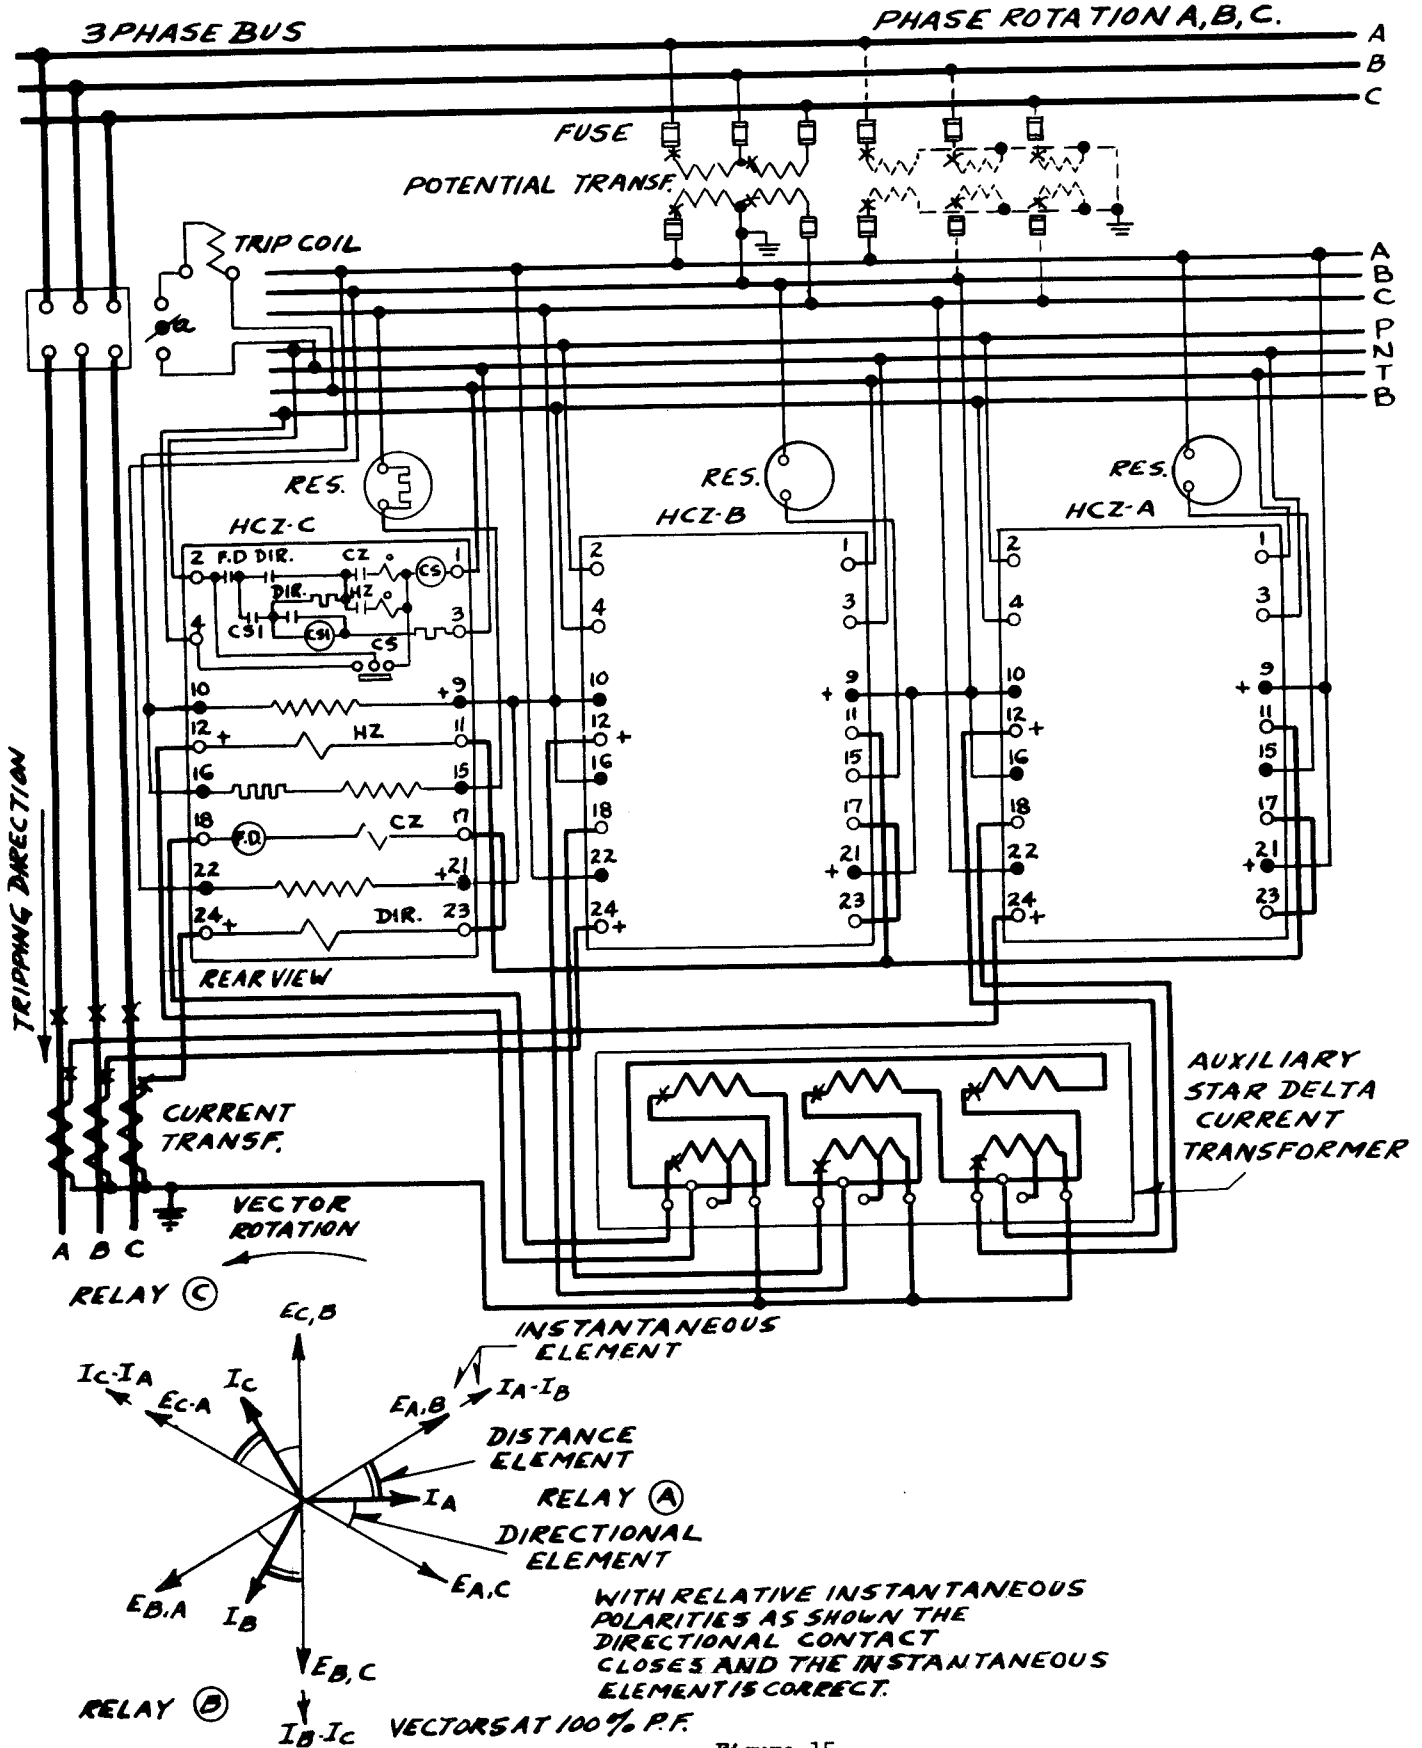 3 PHASE BUS
PHASE ROTATION A,B,C.
A
B
C
FUSE
POTENTIAL TRANSF.
TRIP COIL
a
A
B
C
P
N
T
B
RES.
RES.
RES.
HCZ-C
HCZ-B
HCZ-A
2 F.D DIR. CZ CS 1
DIR. HZ
4 CS1 CS1 CS 3
10 + 9
12 + HZ 11
16 15
18 F.D. CZ 17
22 + 21
24 + DIR. 23
REAR VIEW
2 1
4 3
10 + 9
12 + 11
16 15
18 17
22 + 21
24 + 23
2 1
4 3
10 + 9
12 + 11
16 15
18 17
22 + 21
24 + 23
TRIPPING DIRECTION
CURRENT
TRANSF.
AUXILIARY
STAR DELTA
CURRENT
TRANSFORMER
VECTOR
ROTATION
A B C
RELAY C
EC,B
INSTANTANEOUS
ELEMENT
IC-IA
EC-A
IC
EA,B
IA-IB
DISTANCE
ELEMENT
IA
RELAY A
DIRECTIONAL
ELEMENT
EA,C
EB,A
IB
EB,C
RELAY B
IB-IC
WITH RELATIVE INSTANTANEOUS
POLARITIES AS SHOWN THE
DIRECTIONAL CONTACT
CLOSES AND THE INSTANTANEOUS
ELEMENT IS CORRECT.
VECTORS AT 100% P.F.
Figure 15